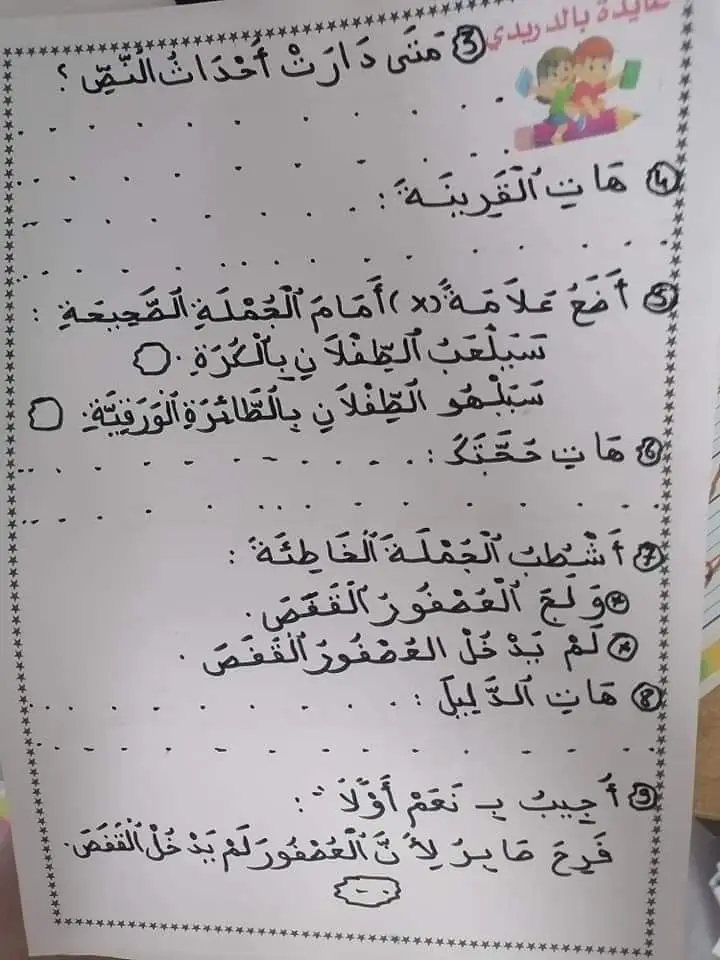 عايدة بالدريدي
③ مَتَى دَارَتْ أَحْدَاثُ النَّصِّ ؟
④ هَاتِ ٱلْقَرِينَةَ :
⑤ أَضَعُ عَلاَمَةً (x) أَمَامَ ٱلْجُمْلَةِ ٱلصَّحِيحَةِ :
سَيَلْعَبُ ٱلطِّفْلاَنِ بِٱلْكُرَةِ .
سَيَلْهُو ٱلطِّفْلاَنِ بِٱلطَّائِرَةِ ٱلْوَرَقِيَّةِ .
⑥ هَاتِ حُجَّتَكَ :
⑦ أَشْطُبُ ٱلْجُمْلَةَ ٱلْخَاطِئَةَ :
* وَلَجَ ٱلْعُصْفُورُ ٱلْقَفَصَ .
* لَمْ يَدْخُلْ العُصْفُورُ ٱلْقَفَصَ .
⑧ هَاتِ ٱلدَّلِيلَ :
⑨ أُجِيبُ بِـ نَعَمْ أَوْ لاَ :
فَرِحَ صَابِرُ لِأَنَّ ٱلْعُصْفُورَ لَمْ يَدْخُلْ ٱلْقَفَصَ .